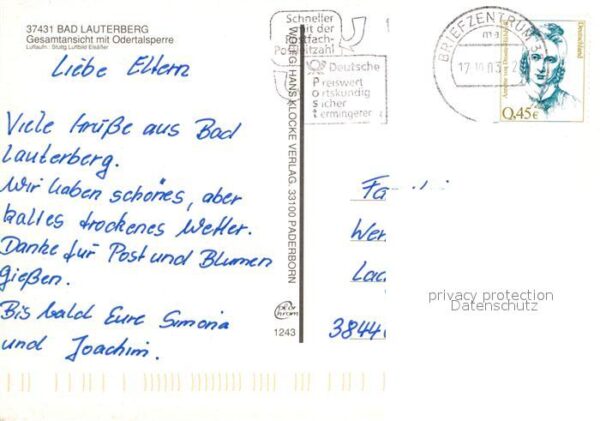 37431 BAD LAUTERBERG
Gesamtansicht mit Odertalsperre
Luftaufn.: Stuttg Luftbild Elsäßer
Liebe Eltern
Viele Grüße aus Bad
Lauterberg.
Wir haben schönes, aber
kaltes trockenes Wetter.
Danke für Post und Blumen
gießen.
Bis bald Eure Simona
und Joachim.
HANS KLOCKE VERLAG. 33100 PADERBORN
1243
Schneller
mit der
Postfach-
Postleitzahl
Deutsche
Preiswert
ortskundig
sicher
termingerer
BRIEFZENTRUM 3
Deutschland
0,45€
3844
privacy protection
Datenschutz